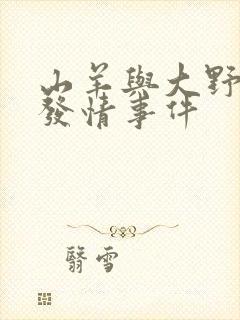 山羊與大野
發情事件
翳雪